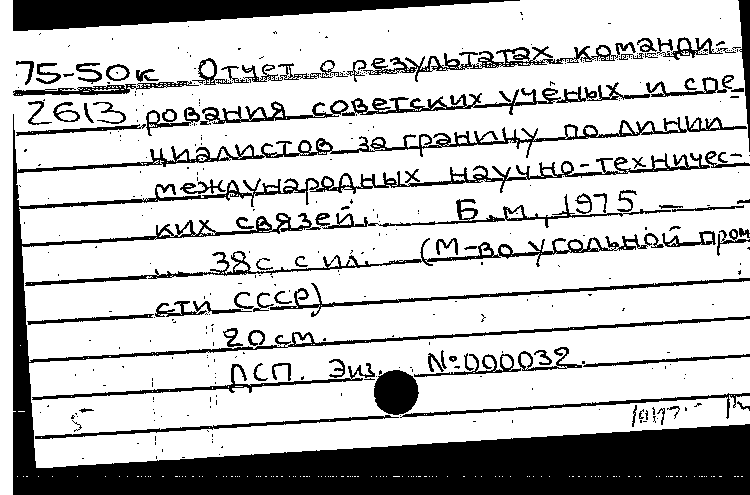 75-50к Отчет о результатах команди-
2613 рования советских учёных и спе
циалистов за границу по линии
международных научно-техничес-
ких связей. Б.м., 1975. –
38с. с ил. (М-во угольной пром
сти СССР)
20 см.
ДСП. Экз. №000032.
5